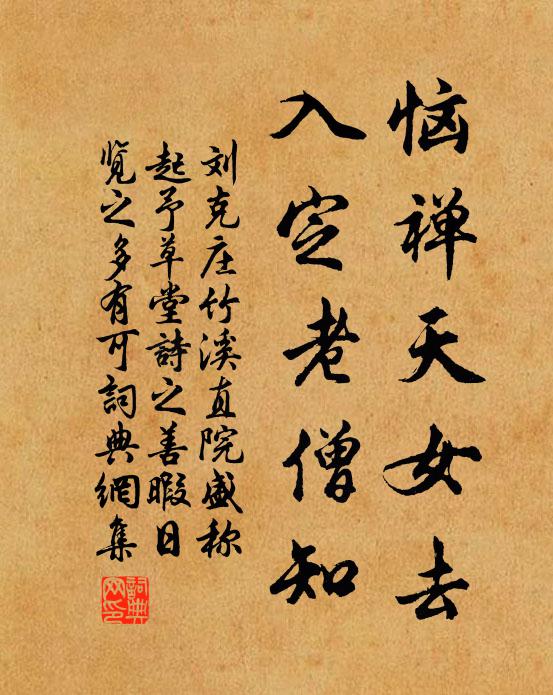 恼禅天女去
入定老僧知
刘克庄竹溪直院盛称
起予草堂詩之善暇日
览之多有可詞典網集
詞典网印